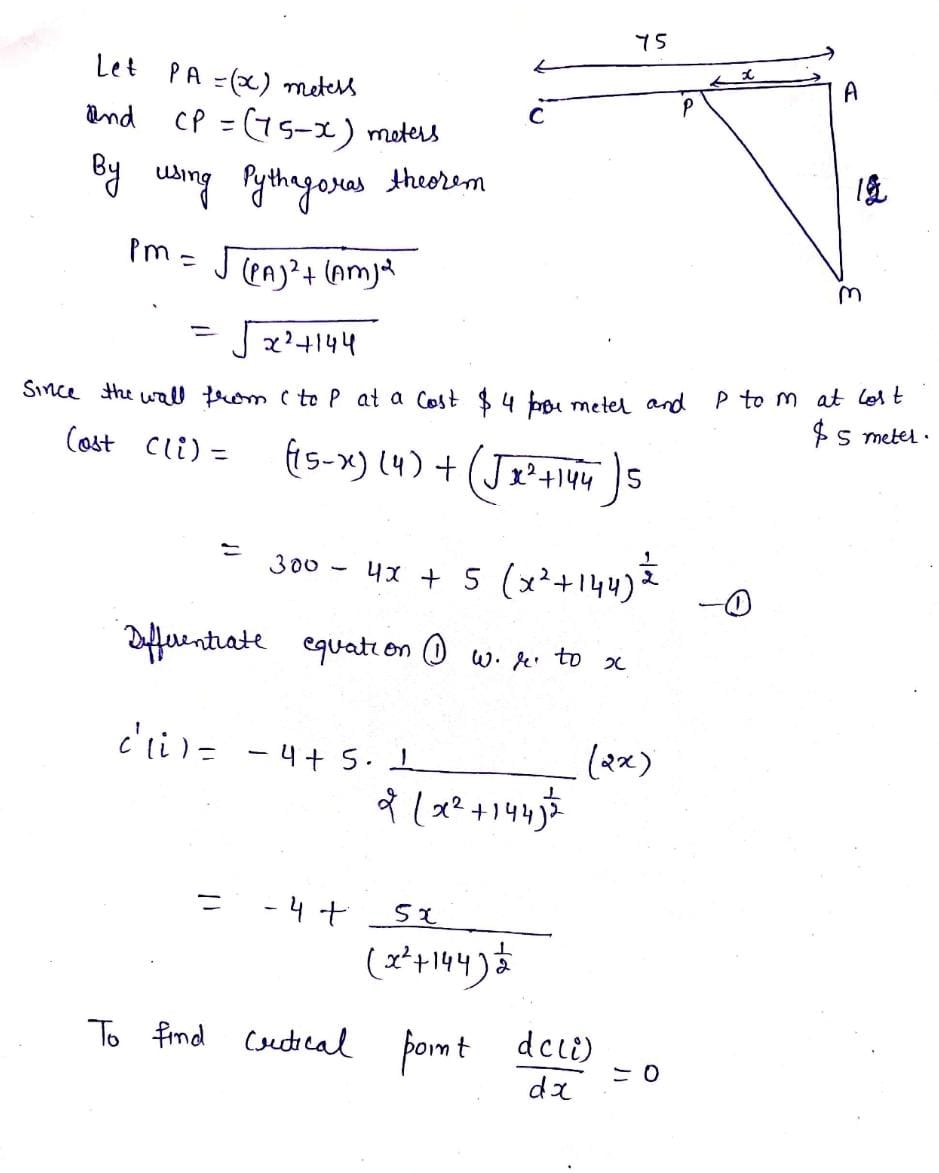 75
x
C P A
12
M
Let PA = (x) meters
and CP = (75-x) meters
By using Pythagoras theorem
Pm = √((PA)²+(Am)²)
= √(x²+144)
Since the wall from C to P at a Cost $ 4 per meter and P to m at Cost
$ 5 meter.
Cost C(i) = (75-x) (4) + (√(x²+144))5
= 300 - 4x + 5 (x²+144)^(1/2) -①
Differentiate equation ① w. r. to x
c'(i) = -4 + 5. 1/(2(x²+144)^(1/2)) (2x)
= -4 + 5x/(x²+144)^(1/2)
To find critical point dc(i)/dx = 0